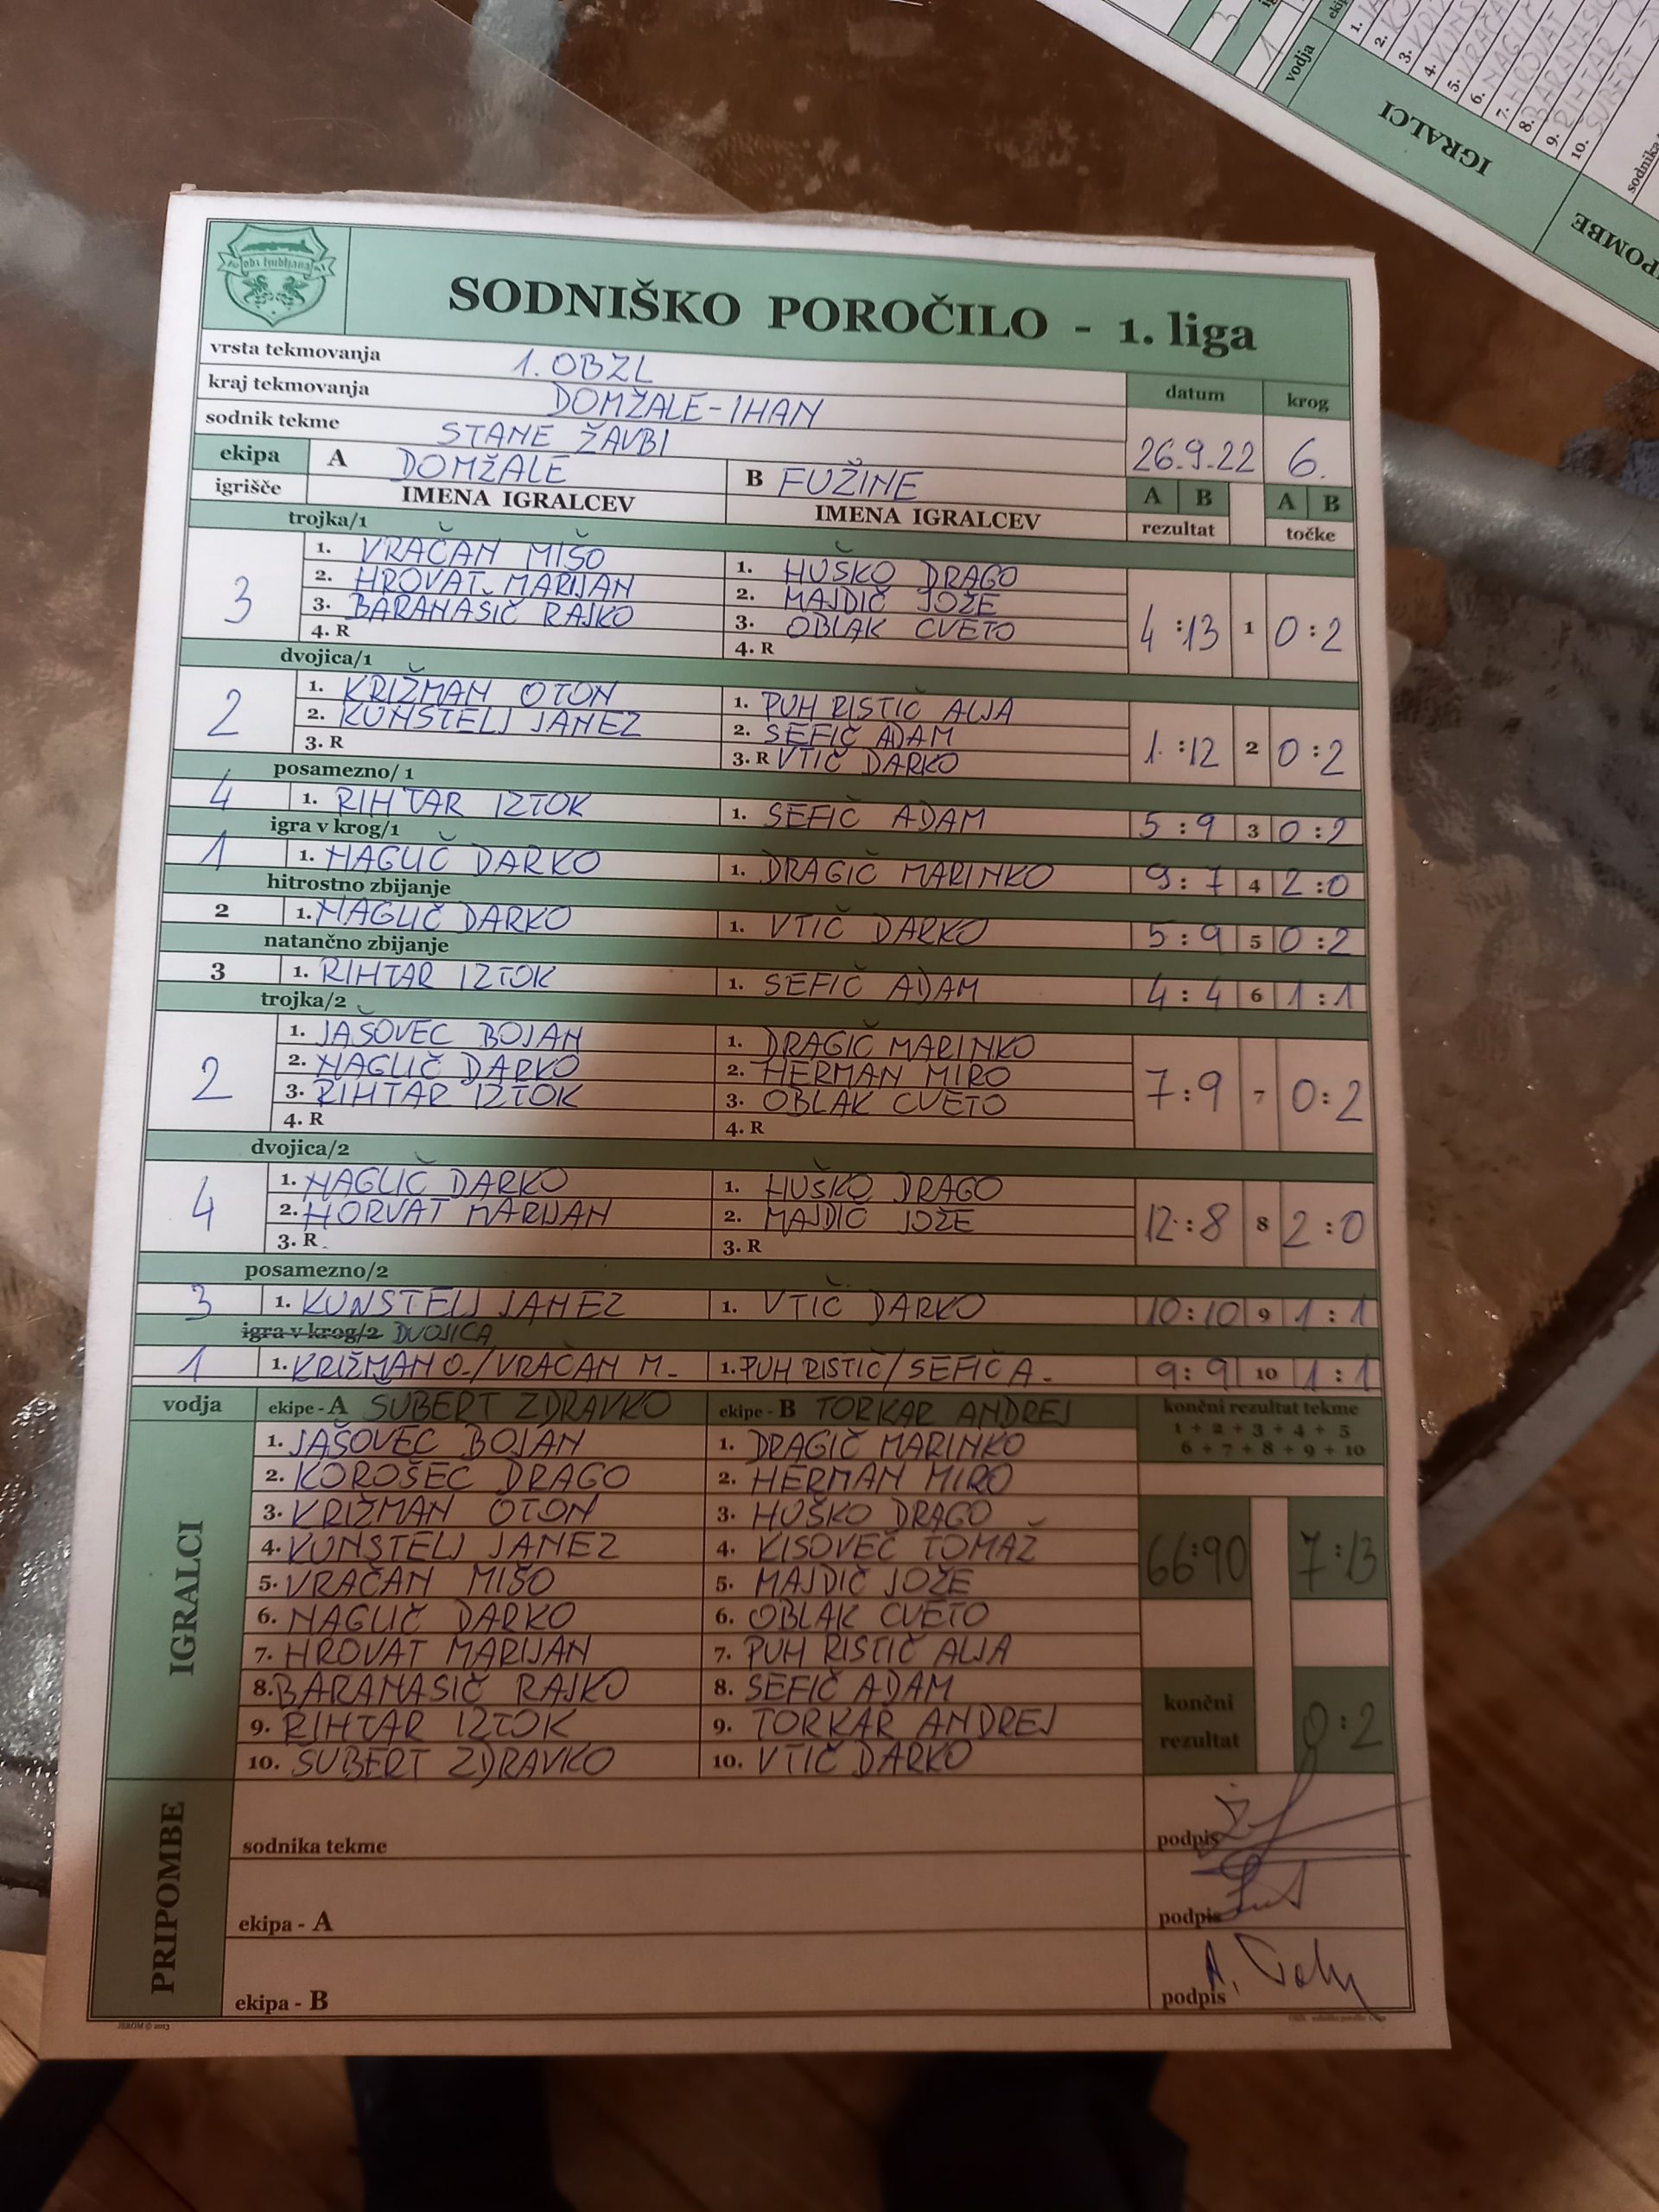 obz ljubljana
SODNIŠKO POROČILO - 1. liga
vrsta tekmovanja 1. OBZL
kraj tekmovanja DOMŽALE-IHAN datum krog
sodnik tekme STANE ŽAVBI 26.9.22 6.
ekipa A DOMŽALE B FUŽINE A B A B
igrišče IMENA IGRALCEV IMENA IGRALCEV rezultat točke
trojka/1
3 1. VRAČAN MIŠO 1. HUŠKO DRAGO 4:13 1 0:2
2. HROVAT MARIJAN 2. MAJDIČ JOŽE
3. BARANAŠIČ RAJKO 3. OBLAK CVETO
4. R 4. R
dvojica/1
2 1. KRIŽMAN OTON 1. PUH RISTIČ ALJA 1:12 2 0:2
2. KUNSTELJ JANEZ 2. SEFIČ ADAM
3. R 3. R VTIČ DARKO
posamezno/1
4 1. RIHTAR IZTOK 1. SEFIČ ADAM 5:9 3 0:2
igra v krog/1
1 1. NAGLIČ DARKO 1. DRAGIČ MARINKO 9:7 4 2:0
hitrostno zbijanje
2 1. NAGLIČ DARKO 1. VTIČ DARKO 5:9 5 0:2
natančno zbijanje
3 1. RIHTAR IZTOK 1. SEFIČ ADAM 4:4 6 1:1
trojka/2
2 1. JAŠOVEC BOJAN 1. DRAGIČ MARINKO 7:9 7 0:2
2. NAGLIČ DARKO 2. HERMAN MIRO
3. RIHTAR IZTOK 3. OBLAK CVETO
4. R 4. R
dvojica/2
4 1. NAGLIČ DARKO 1. HUŠKO DRAGO 12:8 8 2:0
2. HORVAT MARIJAN 2. MAJDIČ JOŽE
3. R 3. R
posamezno/2
3 1. KUNSTELJ JANEZ 1. VTIČ DARKO 10:10 9 1:1
igra v krog/2 DVOJICA
1 1. KRIŽMAN O./VRAČAN M. 1. PUH RISTIČ/SEFIČ A. 9:9 10 1:1
vodja ekipe - A SUBERT ZDRAVKO ekipe - B TORKAR ANDREJ končni rezultat tekme
1 + 2 + 3 + 4 + 5
6 + 7 + 8 + 9 + 10
IGRALCI
1. JAŠOVEC BOJAN 1. DRAGIČ MARINKO
2. KOROŠEC DRAGO 2. HERMAN MIRO
3. KRIŽMAN OTON 3. HUŠKO DRAGO
4. KUNSTELJ JANEZ 4. KISOVEČ TOMAŽ 66:90 7:13
5. VRAČAN MIŠO 5. MAJDIČ JOŽE
6. NAGLIČ DARKO 6. OBLAK CVETO
7. HROVAT MARIJAN 7. PUH RISTIČ ALJA
8. BARANASIČ RAJKO 8. SEFIČ ADAM
9. RIHTAR IZTOK 9. TORKAR ANDREJ
10. ŠUBERT ZDRAVKO 10. VTIČ DARKO
končni rezultat 0:2
PRIPOMBE
sodnika tekme podpis
ekipa - A podpis
ekipa - B podpis
JEROM © 2013
vodja
IGRALCI
1.
2.
3.
4. KUNS
5. VRAČA
6. NAGLIČ
7. HROVAT
8. BARANASIČ
9. RIHTAR
10. ŠUBERT
sodnika